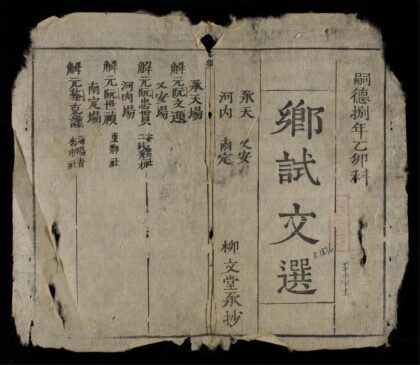 嗣德捌年乙卯科
鄉試文選
承天 乂安
河内 南定
柳文堂承抄
承天場
解元阮文選
乂安場
解元阮忠貫
河内場
解元阮 禎 東鄂社
南定場
解元黎克謹 海陽省
杏市社